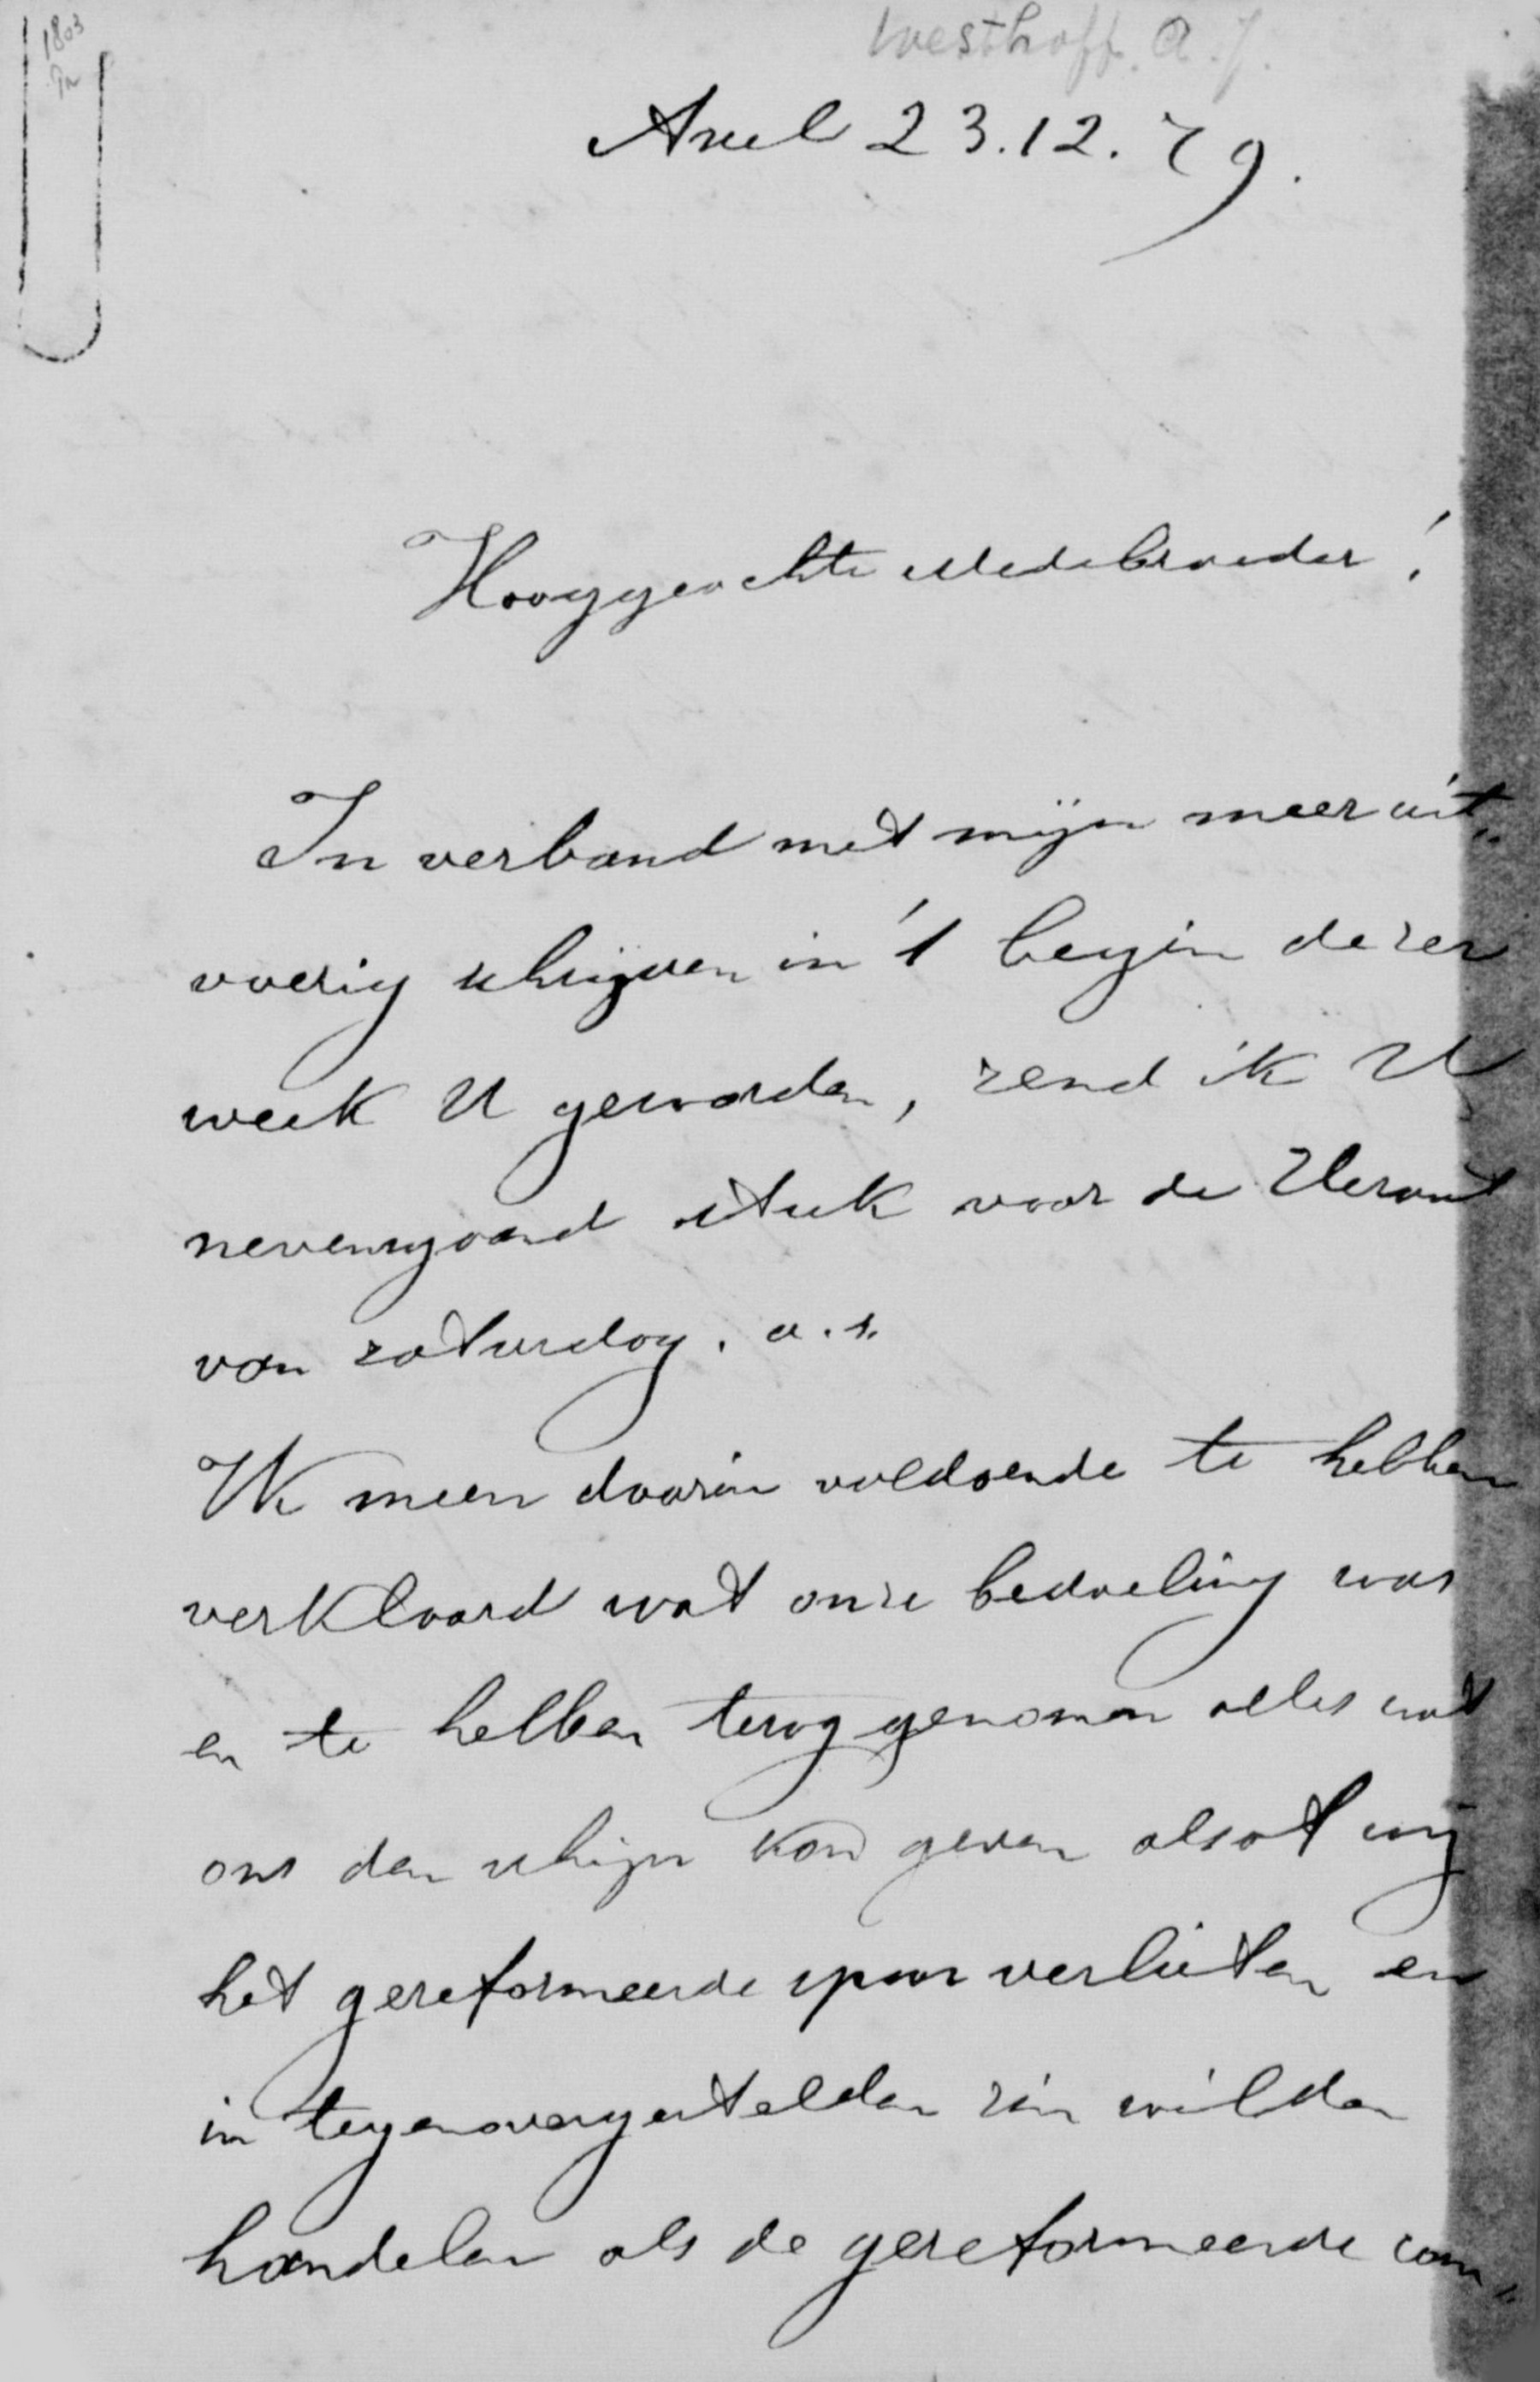 1803
Westhoff. A. J.
Axel 23.12.79.
Hooggeachte Medebroeder!
In verband met mijn meer uit„
voerig schrijven in 't begin dezer
week U geworden, zend ik U
nevensgaand stuk voor de Heraut
van zaturdag. a.s.
We meen daarin voldoende te hebben
verklaard wat onze bedoeling was
en te hebben terug genomen alles wat
ons den schijn kon geven alsof wij
het gereformeerde spoor verlieten en
in tegenovergestelden zin wilden
handelen als de gereformeerde com„